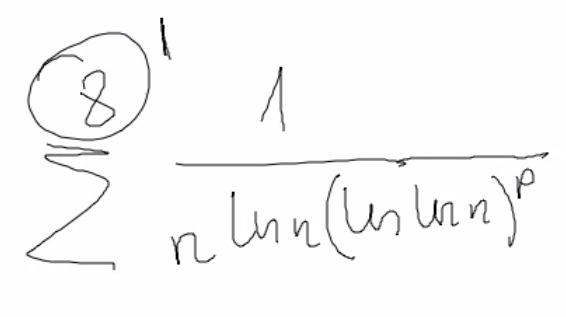 8 1
∑ 1 / n ln n (ln ln n)^p